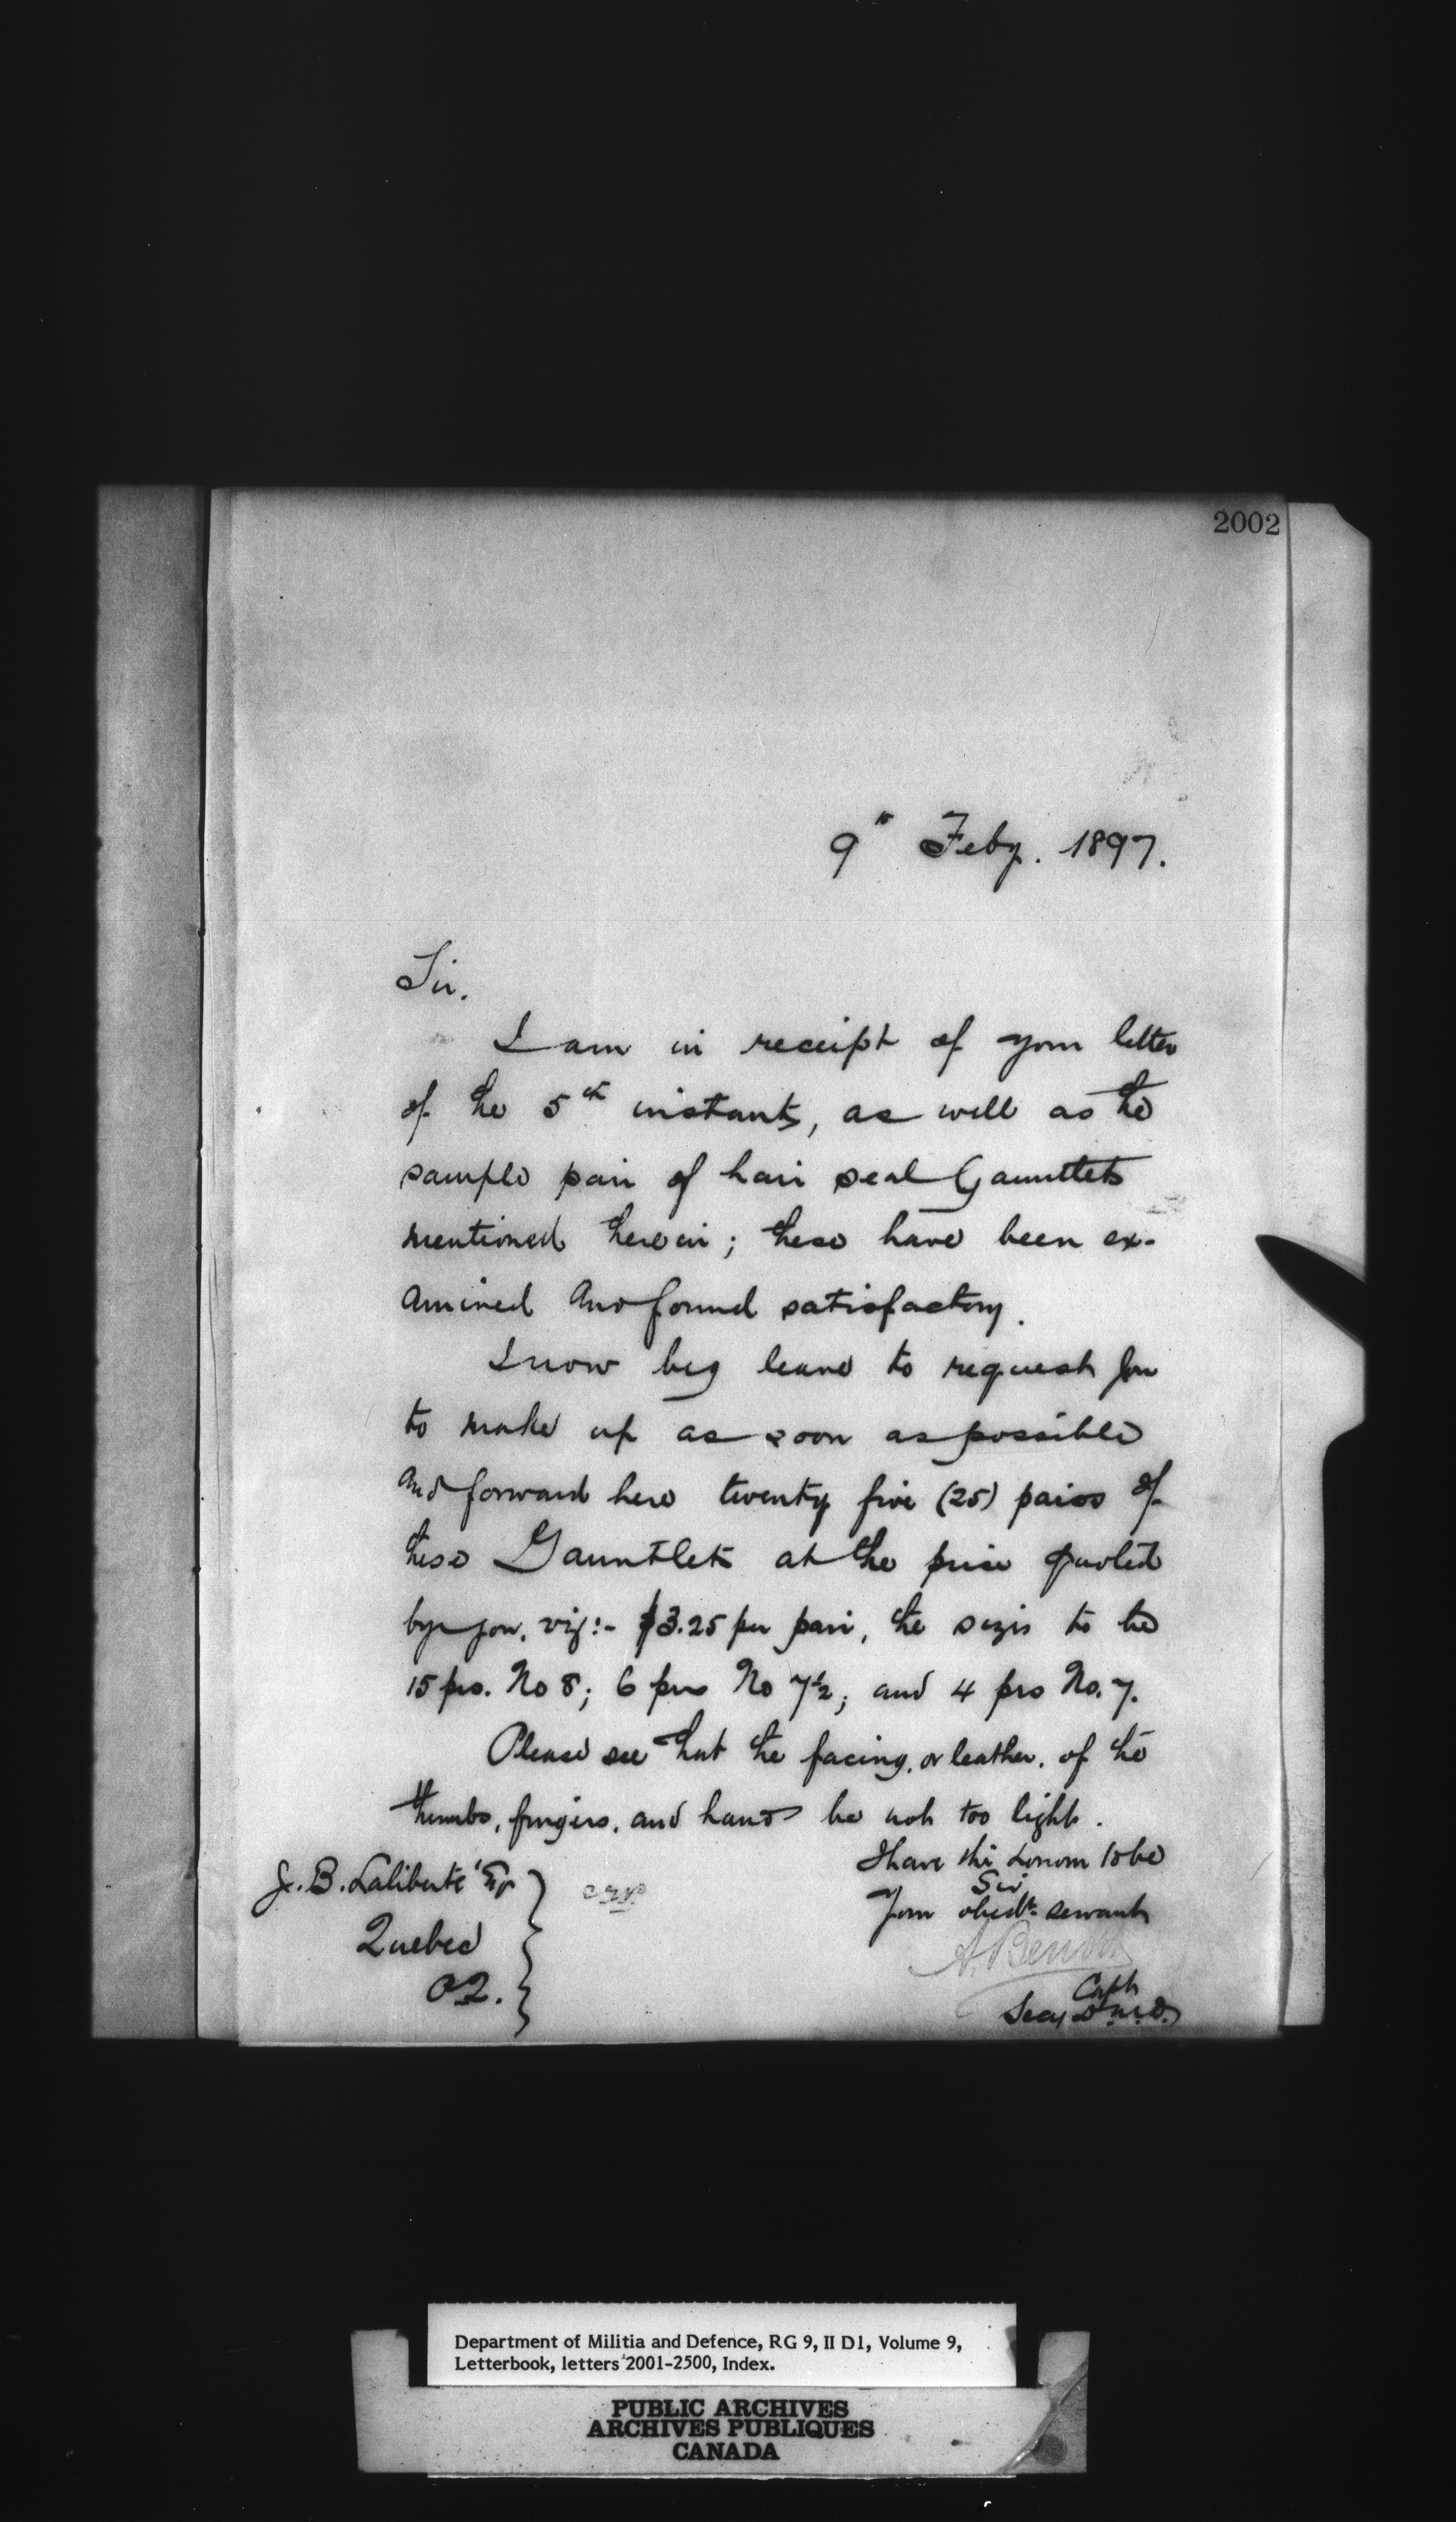 2002
9th Feby. 1897.
Sir.
I am in receipt of your letter
of the 5th instant, as well as the
sample pair of hair seal Gauntlets
mentioned herein; these have been ex-
amined and found satisfactory.
I now beg leave to request you
to make up as soon as possible
and forward here twenty five (25) pairs of
these Gauntlets at the price quoted
by you, viz:- $3.25 per pair, the sizes to be
15 prs. No 8; 6 prs No 7½; and 4 prs No. 7.
Please see that the facing, or leather, of the
thumbs, fingers, and hand be not too light.
I have the honour to be
Sir
Your obedt. servant
A. Benoit
Capt
Secy D.M.D.
J. B. Laliberté Esq
Quebec
Department of Militia and Defence, RG 9, II D1, Volume 9,
Letterbook, letters 2001-2500, Index.
PUBLIC ARCHIVES
ARCHIVES PUBLIQUES
CANADA